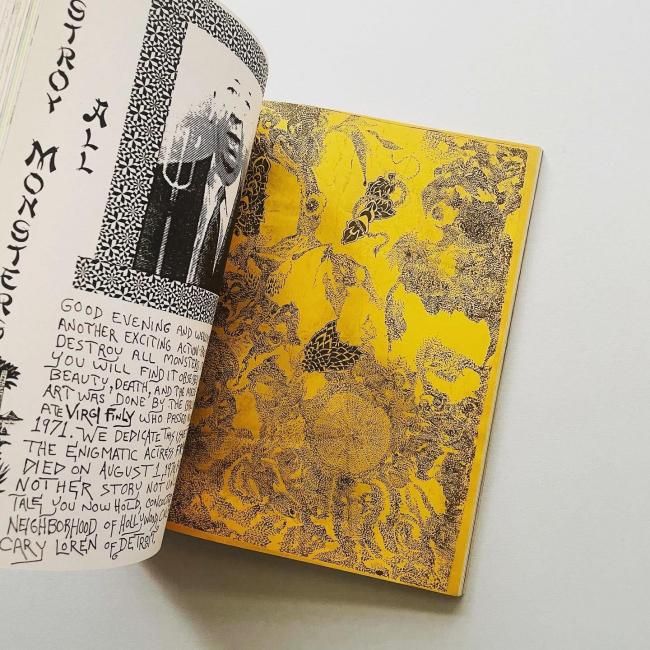 STROY
ALL
MONSTERS
GOOD EVENING AND
ANOTHER EXCITING ACTION
DESTROY ALL MONSTERS
YOU WILL FIND IT
BEAUTY, DEATH, AND THE
ART WAS DONE BY THE
ATE VIRGIL FINLY WHO
1971. WE DEDICATE THIS
THE ENIGMATIC ACTRESS
DIED ON AUGUST 1,
NOTHER STORY NOT
TALE YOU NOW HOLD,
NEIGHBORHOOD OF HOLLYWOOD
CARY LOREN OF DETROIT.